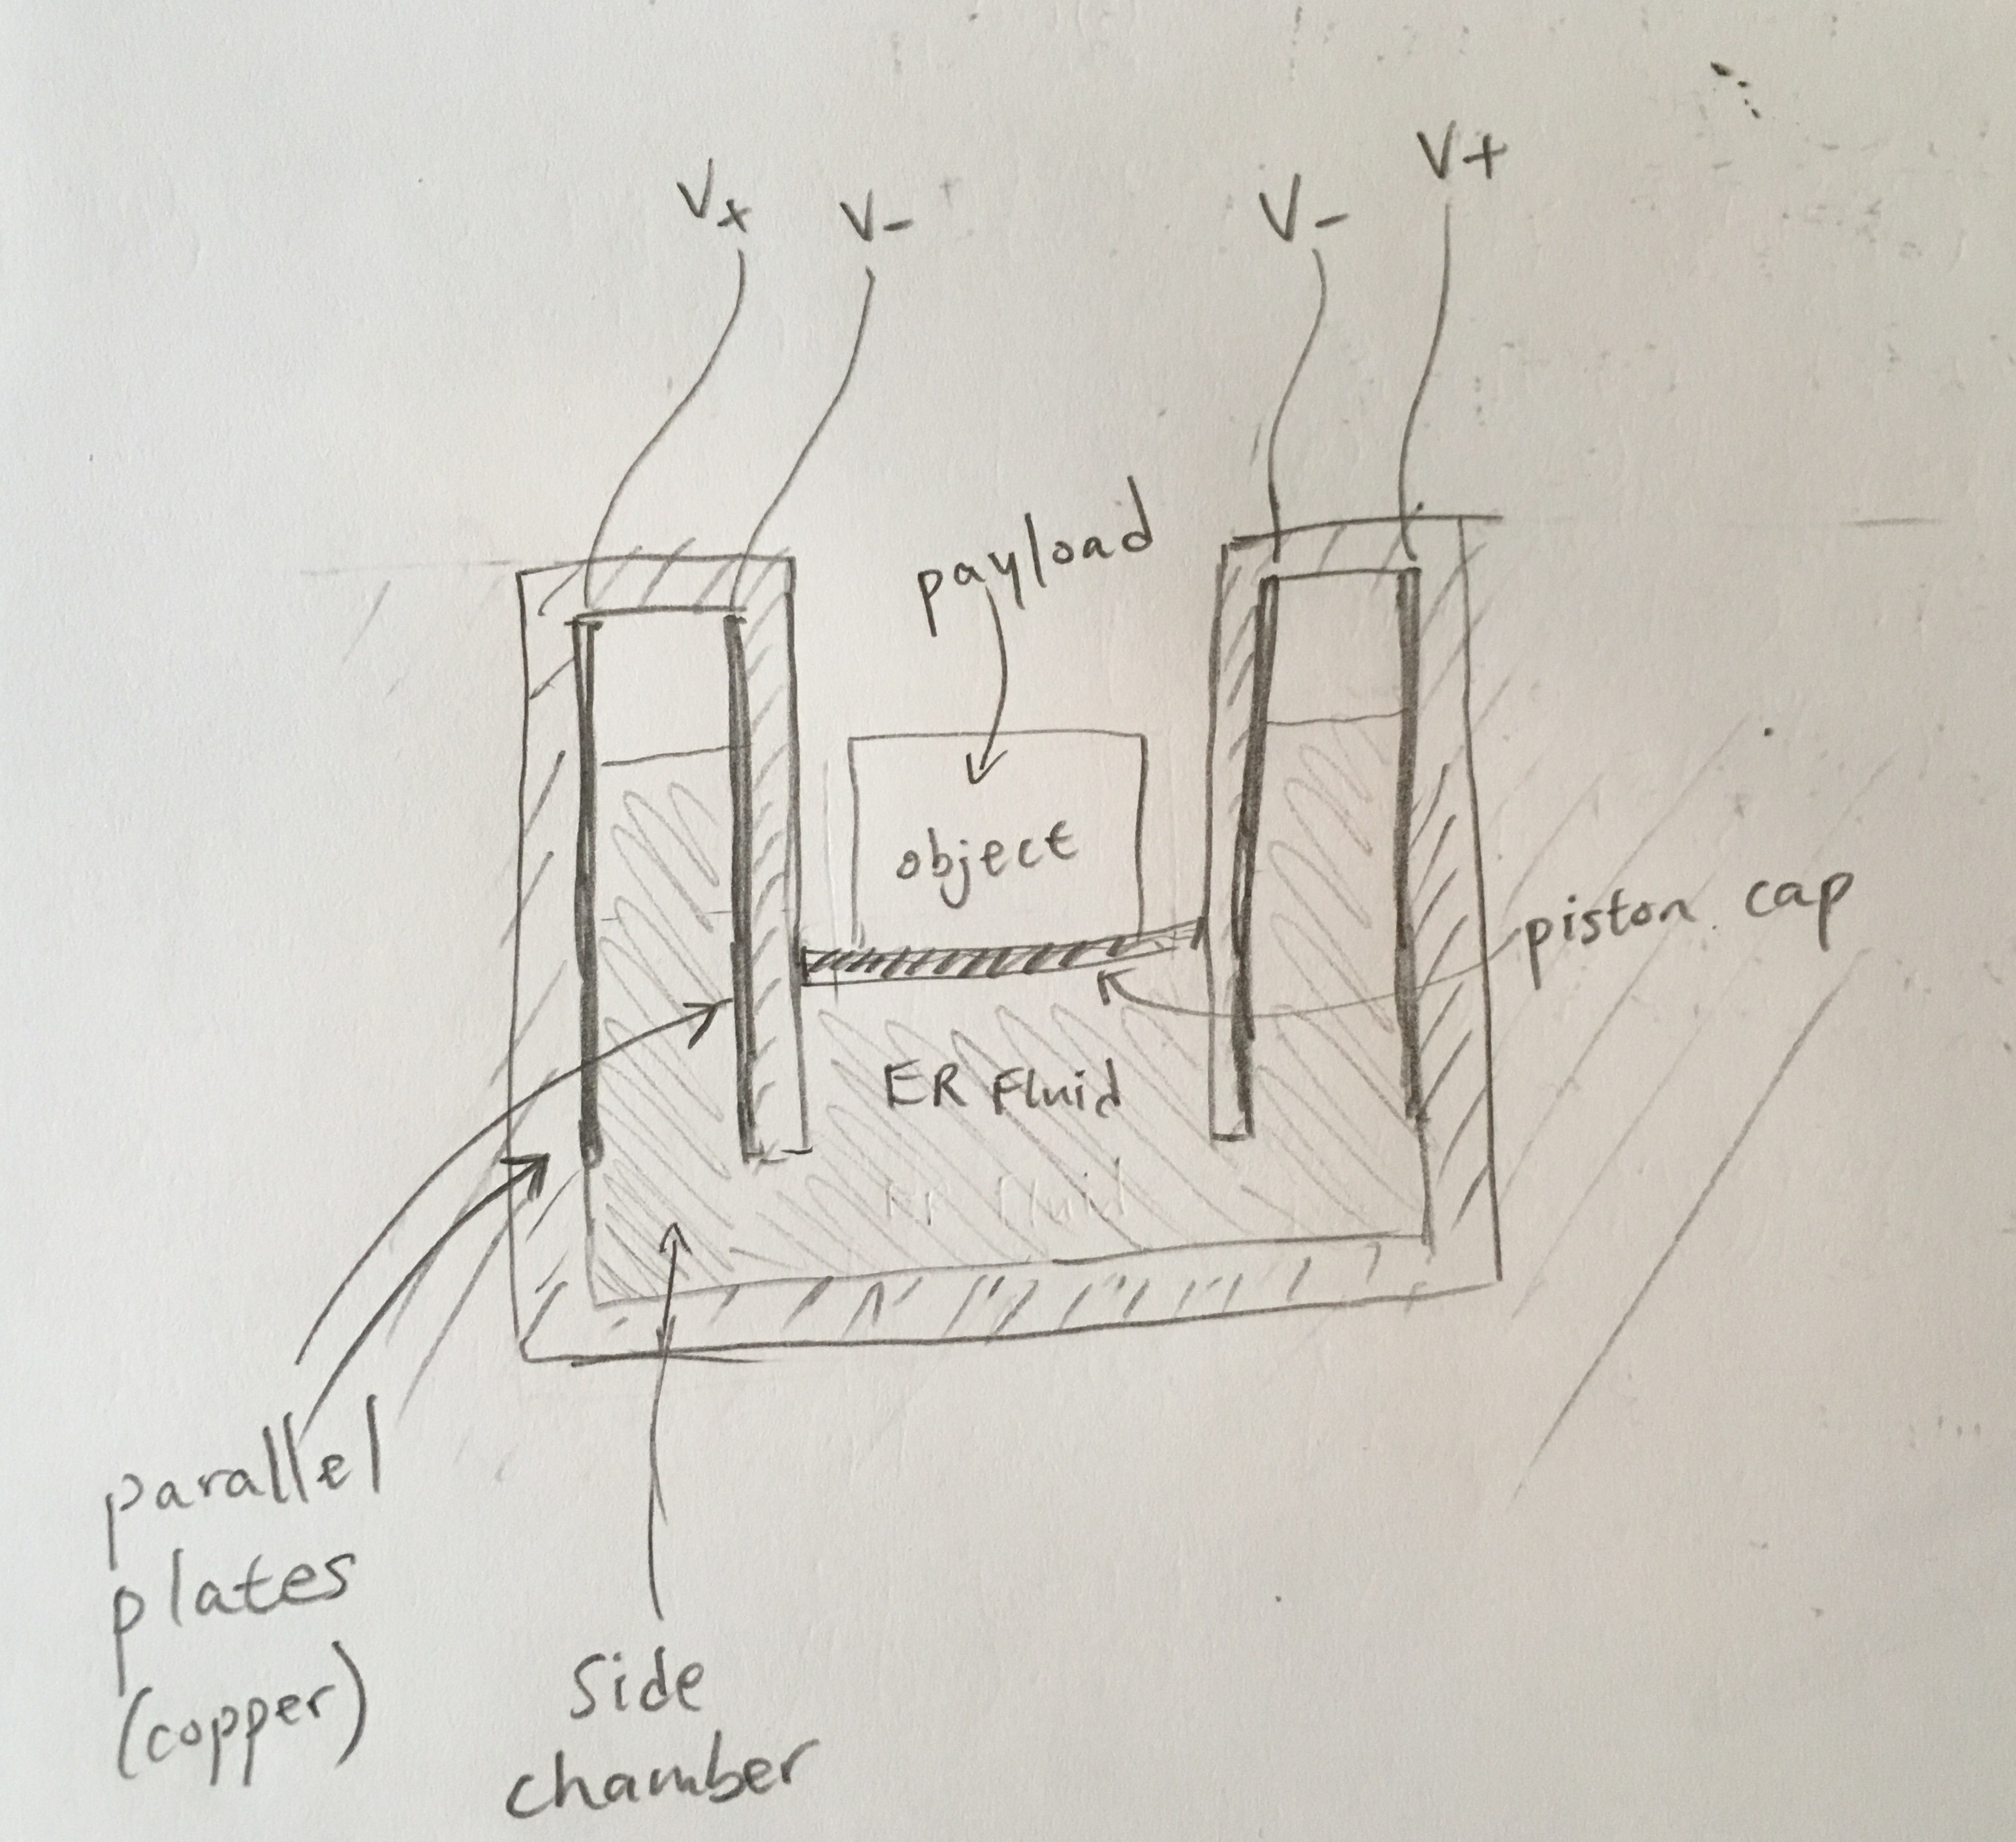 V+
V-
V-
V+
payload
object
piston cap
ER Fluid
ER fluid
parallel
plates
(copper)
Side
chamber